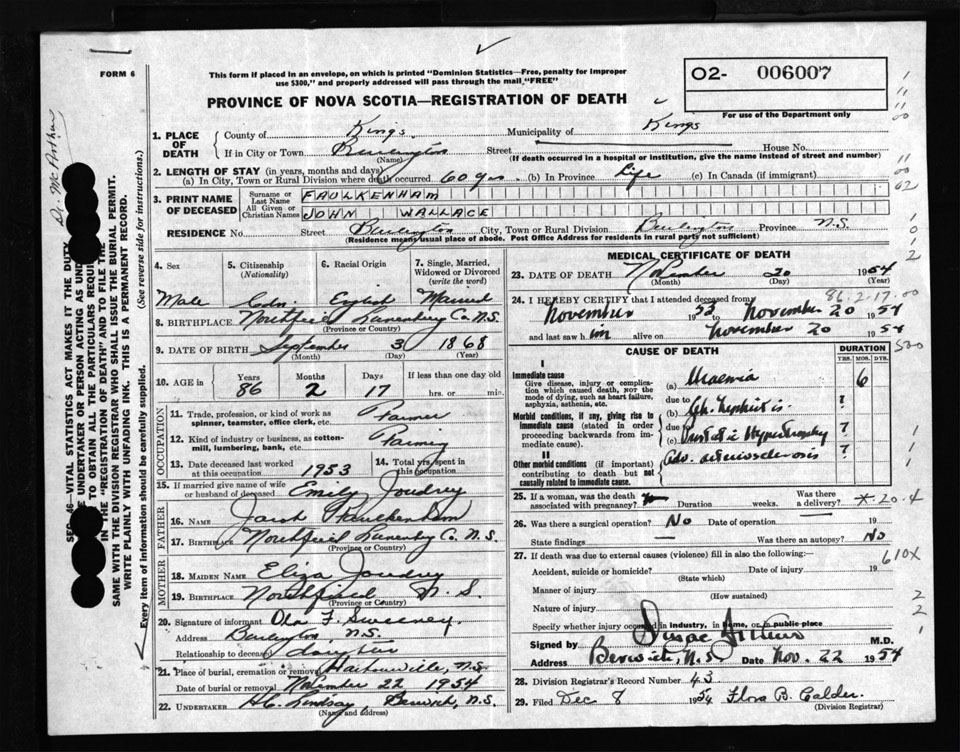 FORM 6
This form if placed in an envelope, on which is printed "Dominion Statistics—Free, penalty for improper
use $300," and properly addressed will pass through the mail, "FREE"
O2- 006007
For use of the Department only
PROVINCE OF NOVA SCOTIA—REGISTRATION OF DEATH
1. PLACE OF DEATH
County of Kings Municipality of Kings
If in City or Town Burlington Street House No.
(Name) (If death occurred in a hospital or institution, give the name instead of street and number)
2. LENGTH OF STAY (in years, months and days)
(a) In City, Town or Rural Division where death occurred 60 yrs. (b) In Province Life (c) In Canada (if immigrant)
3. PRINT NAME OF DECEASED
Surname or Last Name FAULKENHAM
All Given or Christian Names JOHN WALLACE
RESIDENCE No. Street Burlington City, Town or Rural Division Burlington Province N.S.
(Residence means usual place of abode. Post Office Address for residents in rural parts not sufficient)
4. Sex 5. Citizenship (Nationality) 6. Racial Origin 7. Single, Married, Widowed or Divorced (write the word)
Male Cdn. English Married
8. BIRTHPLACE Northfield Lunenburg Co. N.S.
(Province or Country)
9. DATE OF BIRTH September 3 1868
(Month) (Day) (Year)
10. AGE in Years Months Days If less than one day old
86 2 17 hrs. or min.
OCCUPATION
11. Trade, profession, or kind of work as spinner, teamster, office clerk, etc. Farmer
12. Kind of industry or business, as cotton-mill, lumbering, bank, etc. Farming
13. Date deceased last worked at this occupation 1953 14. Total yrs. spent in this occupation
15. If married give name of wife or husband of deceased Emily Joudrey
FATHER
16. NAME Faulkenham
17. BIRTHPLACE Northfield Lunenburg Co. N.S.
(Province or Country)
MOTHER
18. MAIDEN NAME Eliza Joudrey
19. BIRTHPLACE Northfield N.S.
(Province or Country)
20. Signature of informant F. Sweeney.
Address Burlington, N.S.
Relationship to deceased daughter
21. Place of burial, cremation or removal Harbourville, N.S.
Date of burial or removal November 22 1954
22. UNDERTAKER H.C. Lindsay, Berwick, N.S.
(Name and address)
MEDICAL CERTIFICATE OF DEATH
23. DATE OF DEATH November 20 1954
(Month) (Day) (Year)
86.2.17.00
24. I HEREBY CERTIFY that I attended deceased from
November 1953 to November 20 1954
and last saw him alive on November 20 1954
CAUSE OF DEATH DURATION
YRS. MOS. DYS.
I
Immediate cause
Give disease, injury or complication which caused death, not the mode of dying, such as heart failure, asphyxia, asthenia, etc.
(a) Uraemia 6
due to
(b) Ch. Nephritis ?
Morbid conditions, if any, giving rise to immediate cause (stated in order proceeding backwards from immediate cause).
due to
(c) Prostatic Hypertrophy ?
II
Other morbid conditions (if important) contributing to death but not causally related to immediate cause.
Adv. arteriosclerosis ?
25. If a woman, was the death associated with pregnancy? Duration weeks. Was there a delivery?
26. Was there a surgical operation? No Date of operation 19
State findings Was there an autopsy? No
27. If death was due to external causes (violence) fill in also the following:—
Accident, suicide or homicide? Date of injury 19
(State which)
Manner of injury
(How sustained)
Nature of injury
Specify whether injury occurred in industry, in home, or in public place
Signed by M.D.
Address Berwick, N.S. Date Nov. 22 1954
28. Division Registrar's Record Number 43
29. Filed Dec 8 1954 Flora B. Calder.
(Division Registrar)
610X
Dr. McArthur
SAME WITH THE DIVISION REGISTRAR WHO SHALL ISSUE THE BURIAL PERMIT.
WRITE PLAINLY WITH UNFADING INK. THIS IS A PERMANENT RECORD.
Every item of information should be carefully supplied. (See reverse side for instructions.)